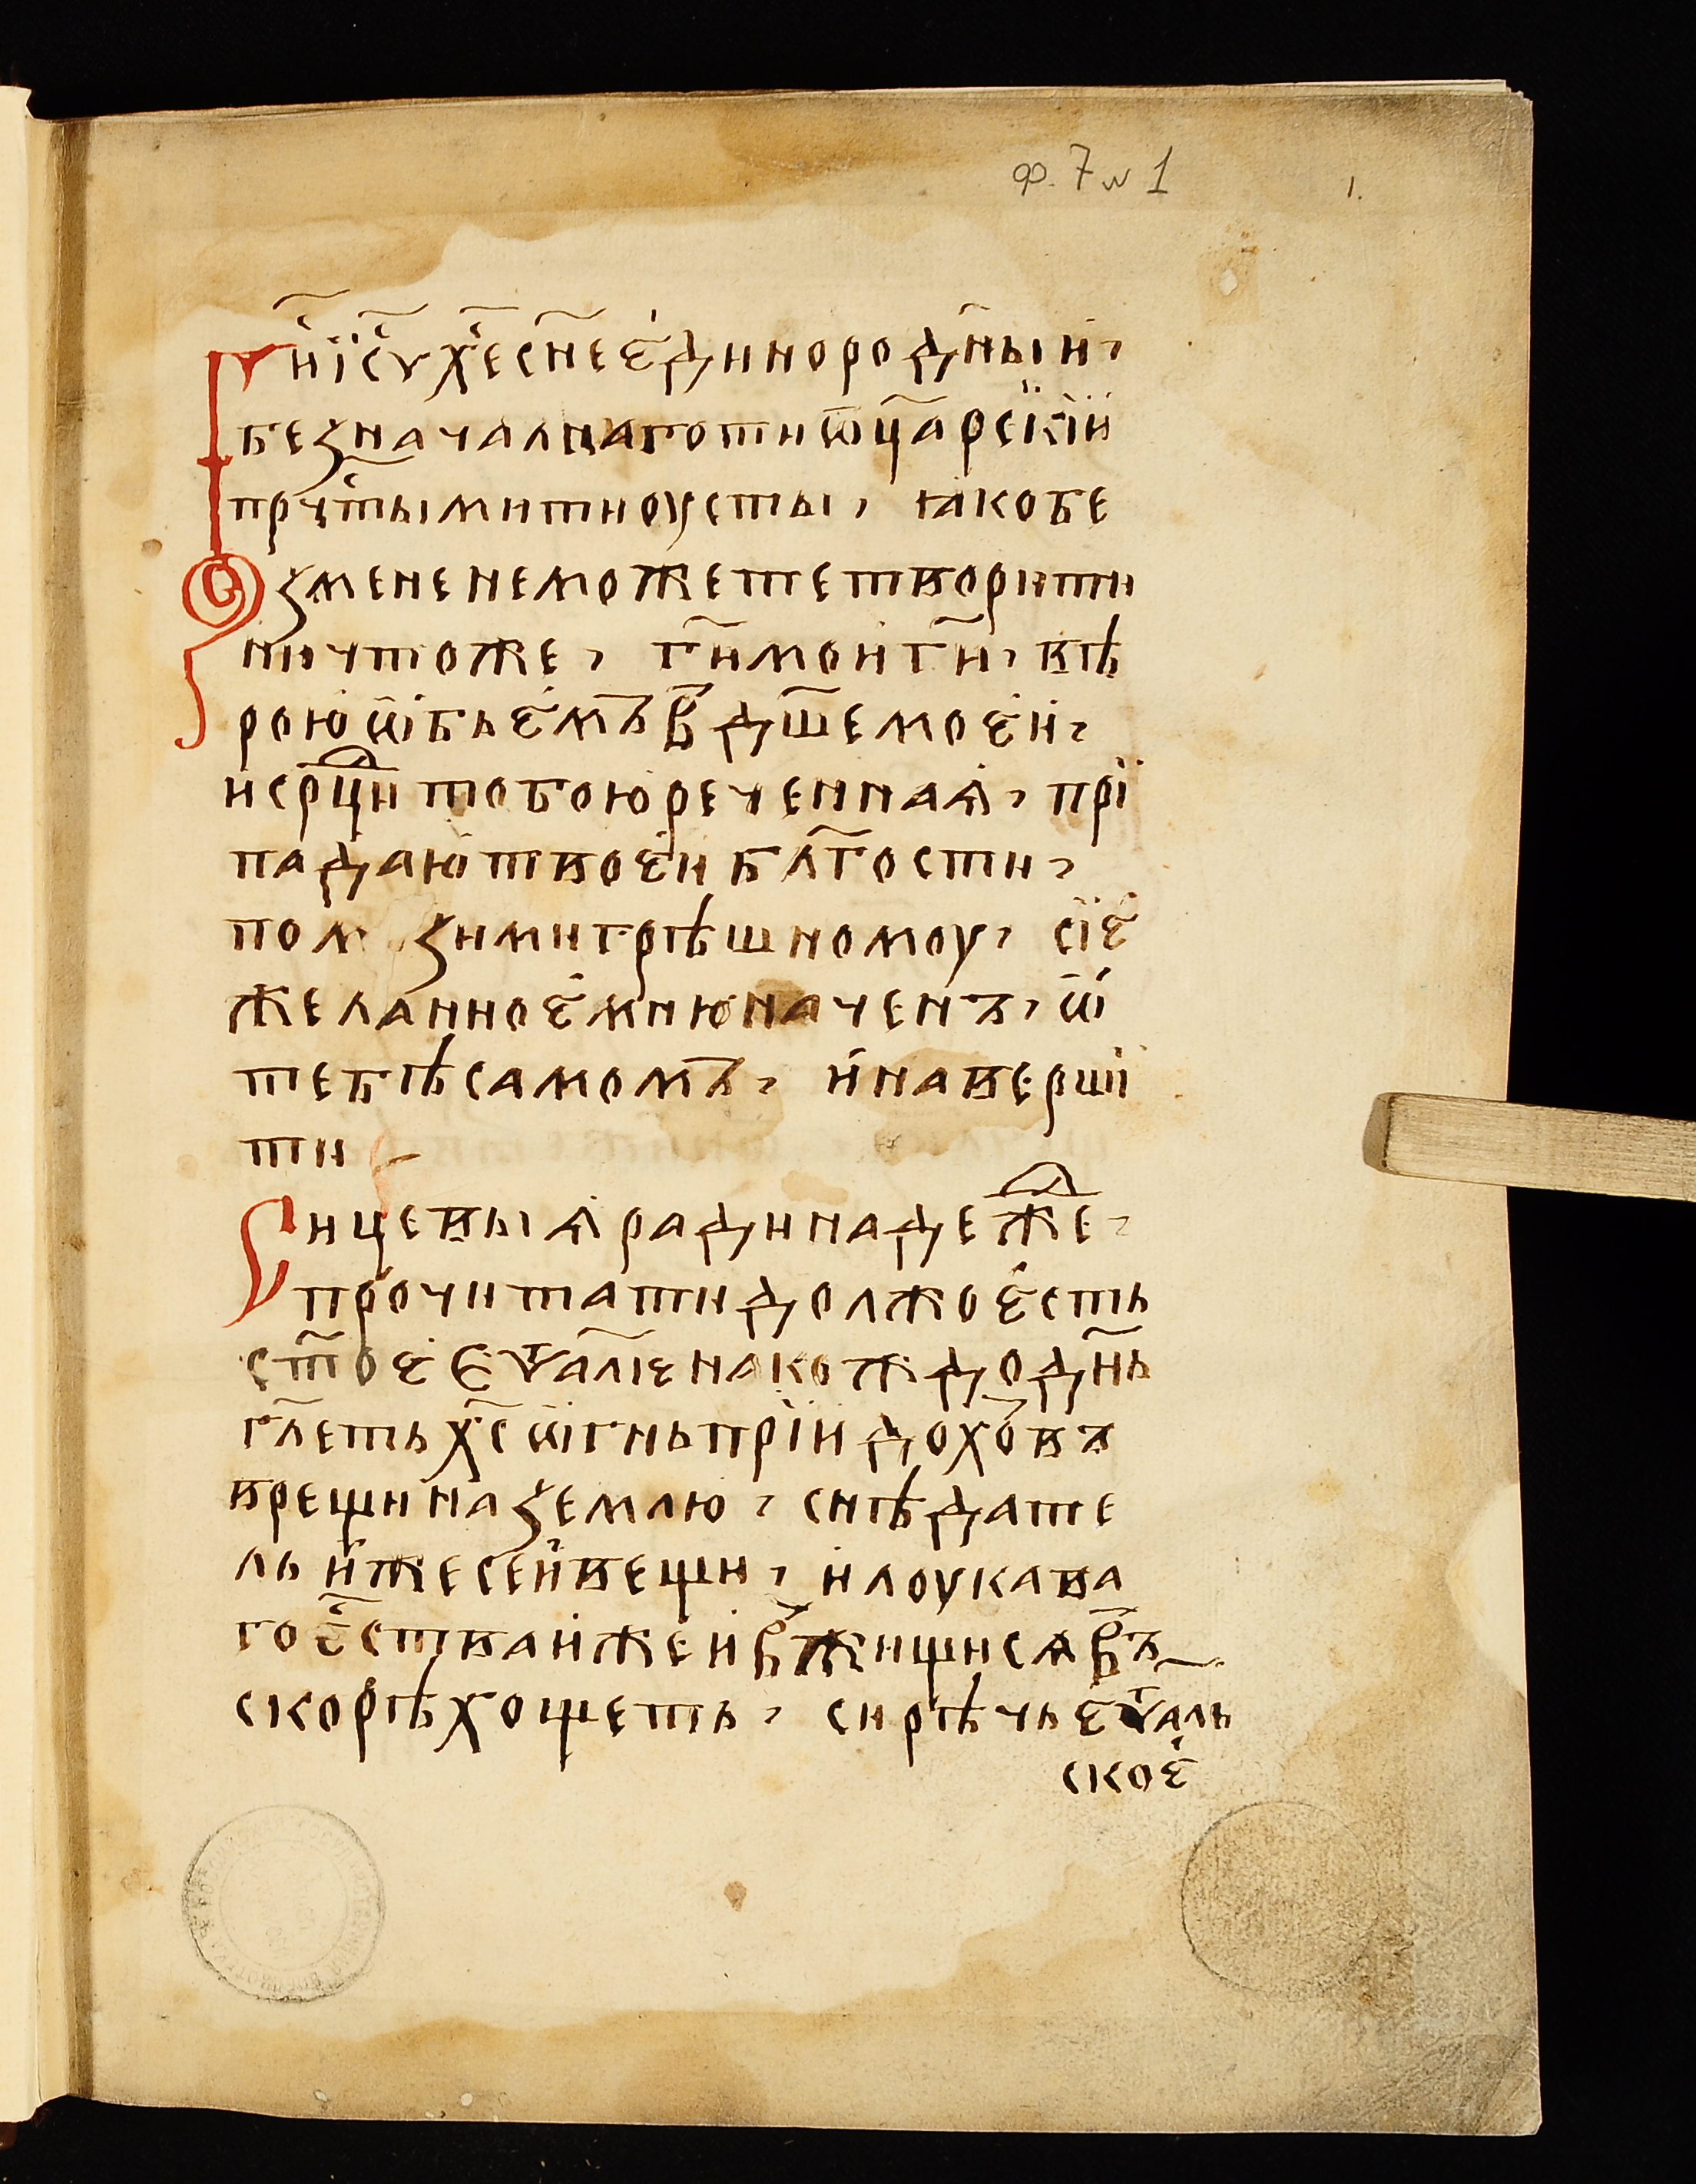 ф. 7 № 1
1.
Г҃и і҃су х҃е с҃не є҆динородн҃ый,
безначалнаго ти ѿц҃а рс̈кїй
прчⷭ҇тыми ти оусты, ꙗко бе
з мене не можете творити
ничтоже, г҃и мой г҃и, вѣ
рою ѡ҆бьем҃ъ в҃ дш҃е моей,
и срⷣци тобою реченнаѧ, прї
падаю твоей бл҃гости,
пом зи ми грѣшномоу, сїе
желанное мню начен ъ, ѿ
тебѣ самом҃ъ, и наверши
ти
Сицевыѧ ради надеⷤже,
прочитати должо єсть
ст҃ое єѵ҃аліє на кождо дн҃ь
гл҃еть х҃с ѡ҆гнь прїйдохо҃въ
врещи на землю, снѣдате
ль иже сей вещи, и лоукава
го є҃ства иже и в҃жищисѧ в҃ъ
скорѣ хощеть, си рѣчь єѵ҃аль
скоє